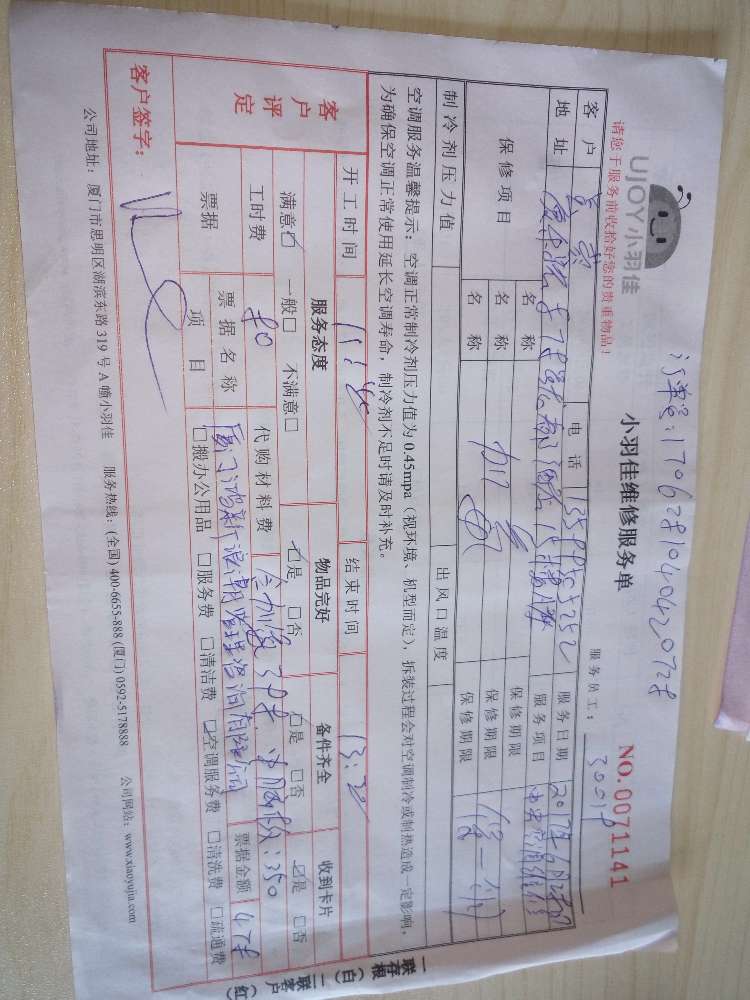 订单号:1706281040420728
UJOY小羽佳
小羽佳维修服务单
NO.0071141
请您于服务前收拾好您的贵重物品!
服务员工:
客户 电话 服务日期
地址 服务项目 中央空调维修
保修项目 名称 保修期限
名称 加氟 保修期限 保一个月
名称 保修期限
制冷剂压力值 出风口温度
空调服务温馨提示:空调正常制冷剂压力值为0.45mpa(视环境、机型而定),拆装过程会对空调制冷或制热造成一定影响,
为确保空调正常使用延长空调寿命,制冷剂不足时请及时补充。
开工时间 11:40 结束时间
客户评定 服务态度 物品完好 备件齐全 收到卡片
满意☑ 一般□ 不满意□ ☑是 □否 ☑是 □否 ☑是 □否
工时费 代购材料费
票据 票据名称 票据金额
项目 □搬办公用品 □服务费 □清洁费 ☑空调服务费 □清洗费 □疏通费
客户签字:
公司地址:厦门市思明区湖滨东路319号A幢小羽佳 服务热线:(全国)400-6655-888(厦门)0592-5178888 公司网站:www.xiaoyujia.com
一联存根(白)二联客户(红)